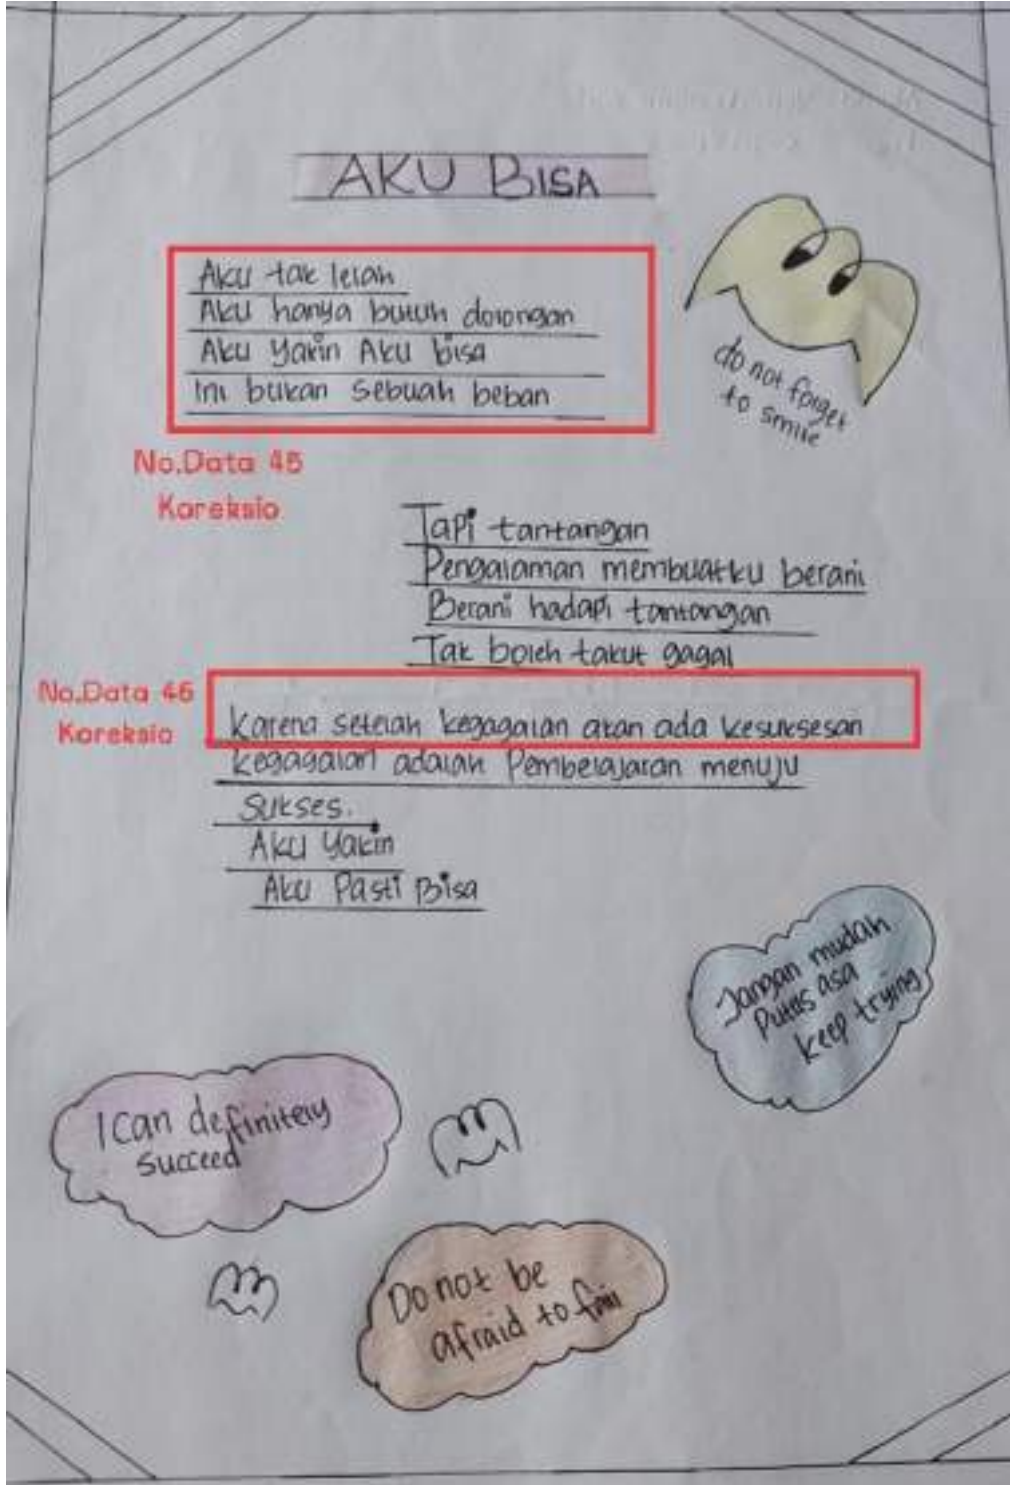 AKU BISA
Aku tak lelah
Aku hanya butuh dorongan
Aku Yakin Aku bisa
Ini bukan sebuah beban
do not forget
to smile
No.Data 45
Koreksio
Tapi tantangan
Pengalaman membuatku berani
Berani hadapi tantangan
Tak boleh takut gagal
No.Data 46
Koreksio
Karena setelah kegagalan akan ada kesuksesan
Kegagalan adalah Pembelajaran menuju
Sukses.
Aku Yakin
Aku Pasti Bisa
Jangan mudah
Putus asa
keep trying
I Can definitely
succeed
Do not be
afraid to fail